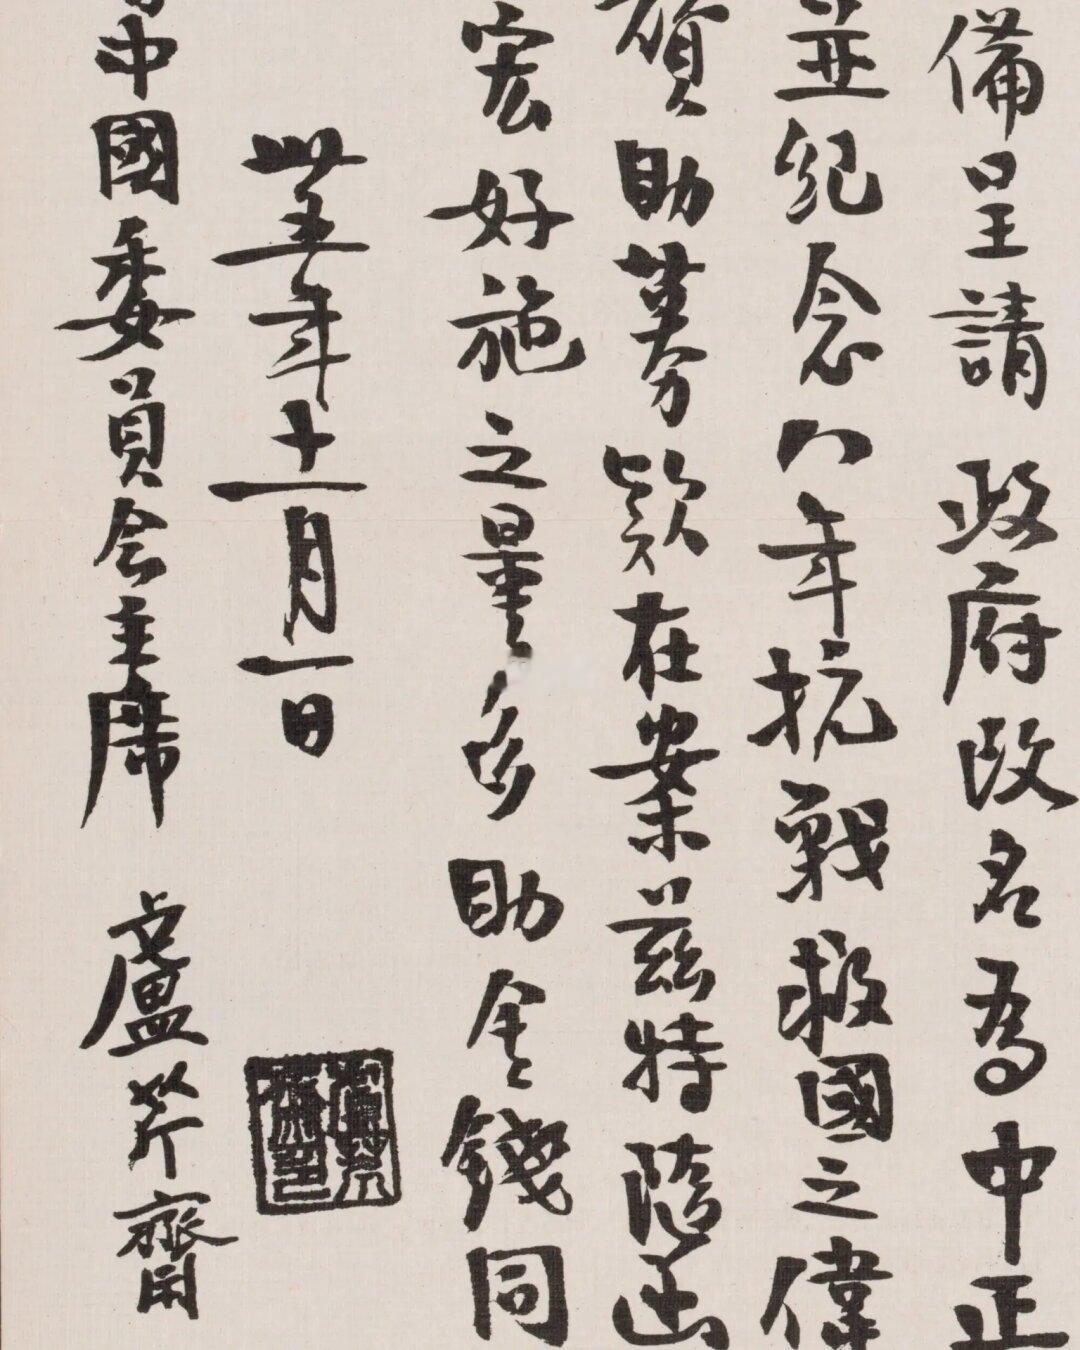 備呈請政府改名為中正
並紀念八年抗戰救國之偉
助募款在案茲特隨函
宏好施之量多助金錢同
卅五年十一月一日
中國委員會主席 盧芹齋